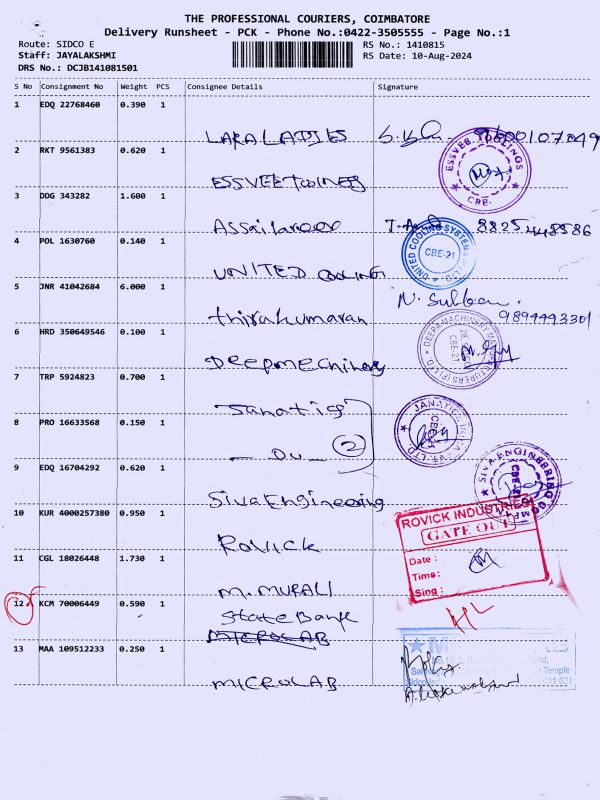 THE PROFESSIONAL COURIERS, COIMBATORE
Delivery Runsheet - PCK - Phone No.:0422-3505555 - Page No.:1
Route: SIDCO E
Staff: JAYALAKSHMI
DRS No.: DCJB141081501
RS No.: 1410815
RS Date: 10-Aug-2024
S No Consignment No Weight PCS Consignee Details Signature
1 EDQ 22768460 0.390 1
LARA LADIES
2 RKT 9561383 0.620 1
ESSVEE TOOLINGS
ESSVEE TOOLINGS
CBE-
3 DDG 343282 1.600 1
8825448586
4 POL 1630760 0.140 1
UNITED COOLING
UNITED COOLING SYSTEMS (P) LTD
CBE-21
5 JNR 41042684 6.000 1
thirukumaran
N. Subban
9894493301
6 HRD 350649546 0.100 1
Deepmechinery
DEEPA MACHINERY MANUFACTURERS (P) LTD
CBE-21
7 TRP 5924823 0.700 1
8 PRO 16633568 0.150 1
- Du - 2
JANATICS INDIA PVT. LTD
9 EDQ 16704292 0.620 1
Siva Engineering
SIVA ENGINEERING COMPANY
10 KUR 4000257380 0.950 1
ROVICK
ROVICK INDUSTRIES
GATE OUT
Date :
Time:
Sing :
11 CGL 18026448 1.730 1
M. MURALI
12 KCM 70006449 0.590 1
State Bank
MICROLAB
13 MAA 109512233 0.250 1
MICROLAB
Temple